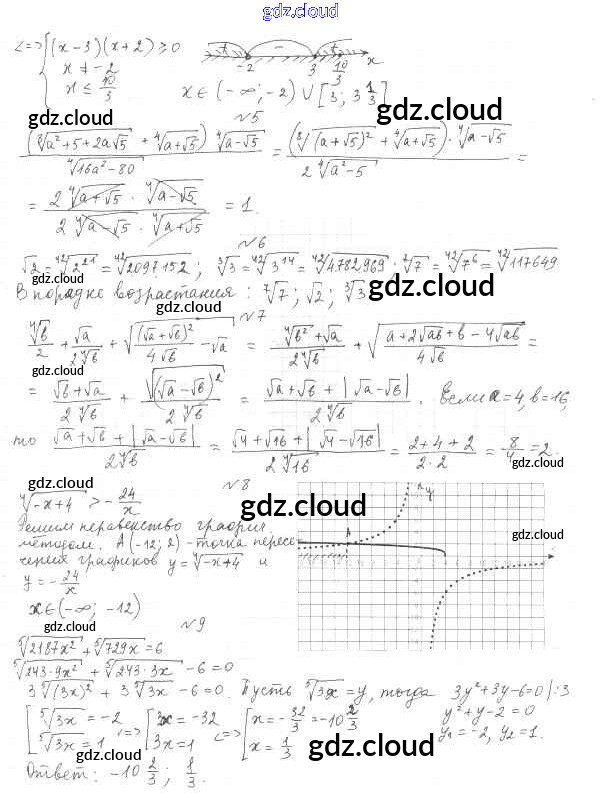 gdz.cloud
<=> { (x-3)(x+2) ≥ 0
x ≠ -2
x ≤ 10/3
+ - + -2 3 10/3 x
x ∈ (-∞; -2) ∪ [3; 3 1/3]
gdz.cloud
№5
(⁸√(a²+5+2a√5) + ⁴√(a+√5)) ⁴√(a-√5) / ⁴√(16a²-80) = (⁸√((a+√5)²) + ⁴√(a+√5)) · ⁴√(a-√5) / 2 ⁴√(a²-5) =
gdz.cloud gdz.cloud
= 2 ⁴√(a+√5) · ⁴√(a-√5) / 2 ⁴√(a-√5) · ⁴√(a+√5) = 1.
gdz.cloud
№6
√2 = ⁴²√(2²¹) = ⁴²√2097152; ³√3 = ⁴²√(3¹⁴) = ⁴²√4782969; ⁷√7 = ⁴²√(7⁶) = ⁴²√117649
gdz.cloud
В порядке возрастания: ⁷√7; √2; ³√3
gdz.cloud
№7
⁴√b/2 + √a/2⁴√b + √((√a+√b)²/4√b - √a) = (⁴√b² + √a)/2⁴√b + √((a+2√ab+b-4√ab)/4√b) =
gdz.cloud gdz.cloud
= (√b+√a)/2⁴√b + √((√a-√b)²)/2⁴√b = (√a+√b+|√a-√b|)/2⁴√b. Если a=4, b=16,
то (√a+√b+|√a-√b|)/2⁴√b = (√4+√16+|√4-√16|)/2⁴√16 = (2+4+2)/2·2 = 8/4 = 2.
gdz.cloud gdz.cloud
№8
⁴√(-x+4) > -24/x
gdz.cloud
gdz.cloud
Решим неравенство графич.
методом. A(-12; 2) - точка пересе-
чения графиков y = ⁴√(-x+4) и
y = -24/x
A y
gdz.cloud gdz.cloud
x ∈ (-∞; -12)
gdz.cloud
№9
⁵√(2187x²) + ⁵√(729x) = 6
⁵√(243·9x²) + ⁵√(243·3x) - 6 = 0
gdz.cloud
3 ⁵√((3x)²) + 3 ⁵√(3x) - 6 = 0. Пусть ⁵√(3x) = y, тогда 3y²+3y-6=0 |:3
y²+y-2=0
y₁=-2, y₂=1.
[ ⁵√(3x) = -2 <=> [ 3x = -32 <=> [ x = -32/3 = -10 2/3
⁵√(3x) = 1 3x = 1 x = 1/3
gdz.cloud gdz.cloud
Ответ: -10 2/3; 1/3.
gdz.cloud